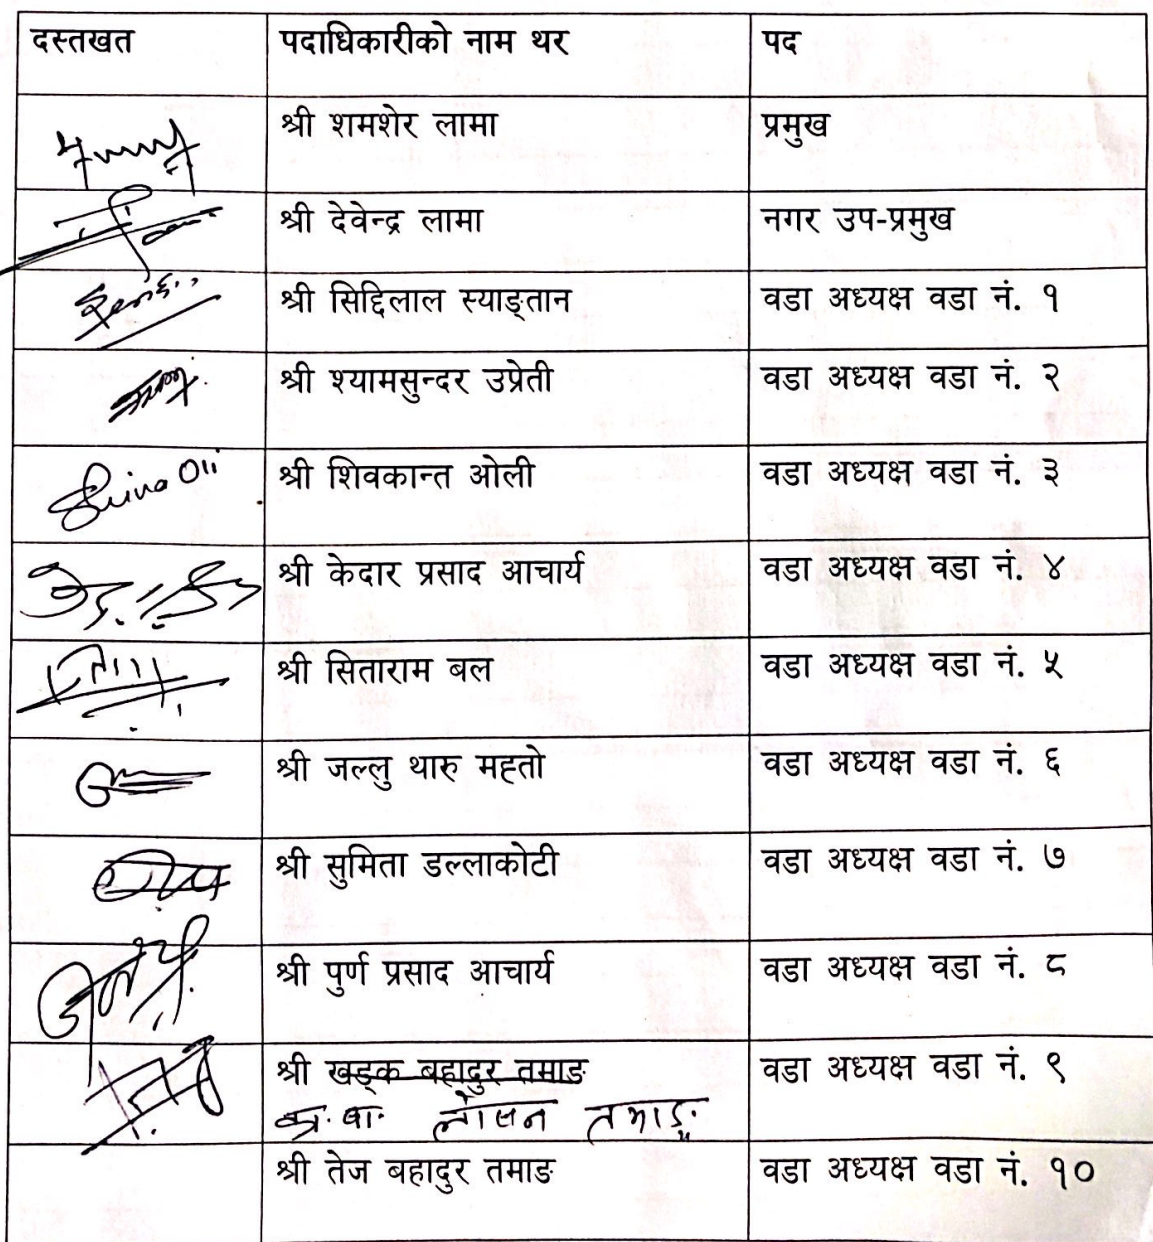 दस्तखत पदाधिकारीको नाम थर पद
श्री शमशेर लामा प्रमुख
श्री देवेन्द्र लामा नगर उप-प्रमुख
श्री सिद्दिलाल स्याङ्तान वडा अध्यक्ष वडा नं. १
श्री श्यामसुन्दर उप्रेती वडा अध्यक्ष वडा नं. २
Shiva Oli श्री शिवकान्त ओली वडा अध्यक्ष वडा नं. ३
श्री केदार प्रसाद आचार्य वडा अध्यक्ष वडा नं. ४
श्री सिताराम बल वडा अध्यक्ष वडा नं. ५
श्री जल्लु थारु महतो वडा अध्यक्ष वडा नं. ६
श्री सुमिता डल्लाकोटी वडा अध्यक्ष वडा नं. ७
श्री पुर्ण प्रसाद आचार्य वडा अध्यक्ष वडा नं. ८
श्री खड्क बहादुर तमाङ वडा अध्यक्ष वडा नं. ९
तमाङ
श्री तेज बहादुर तमाङ वडा अध्यक्ष वडा नं. १०